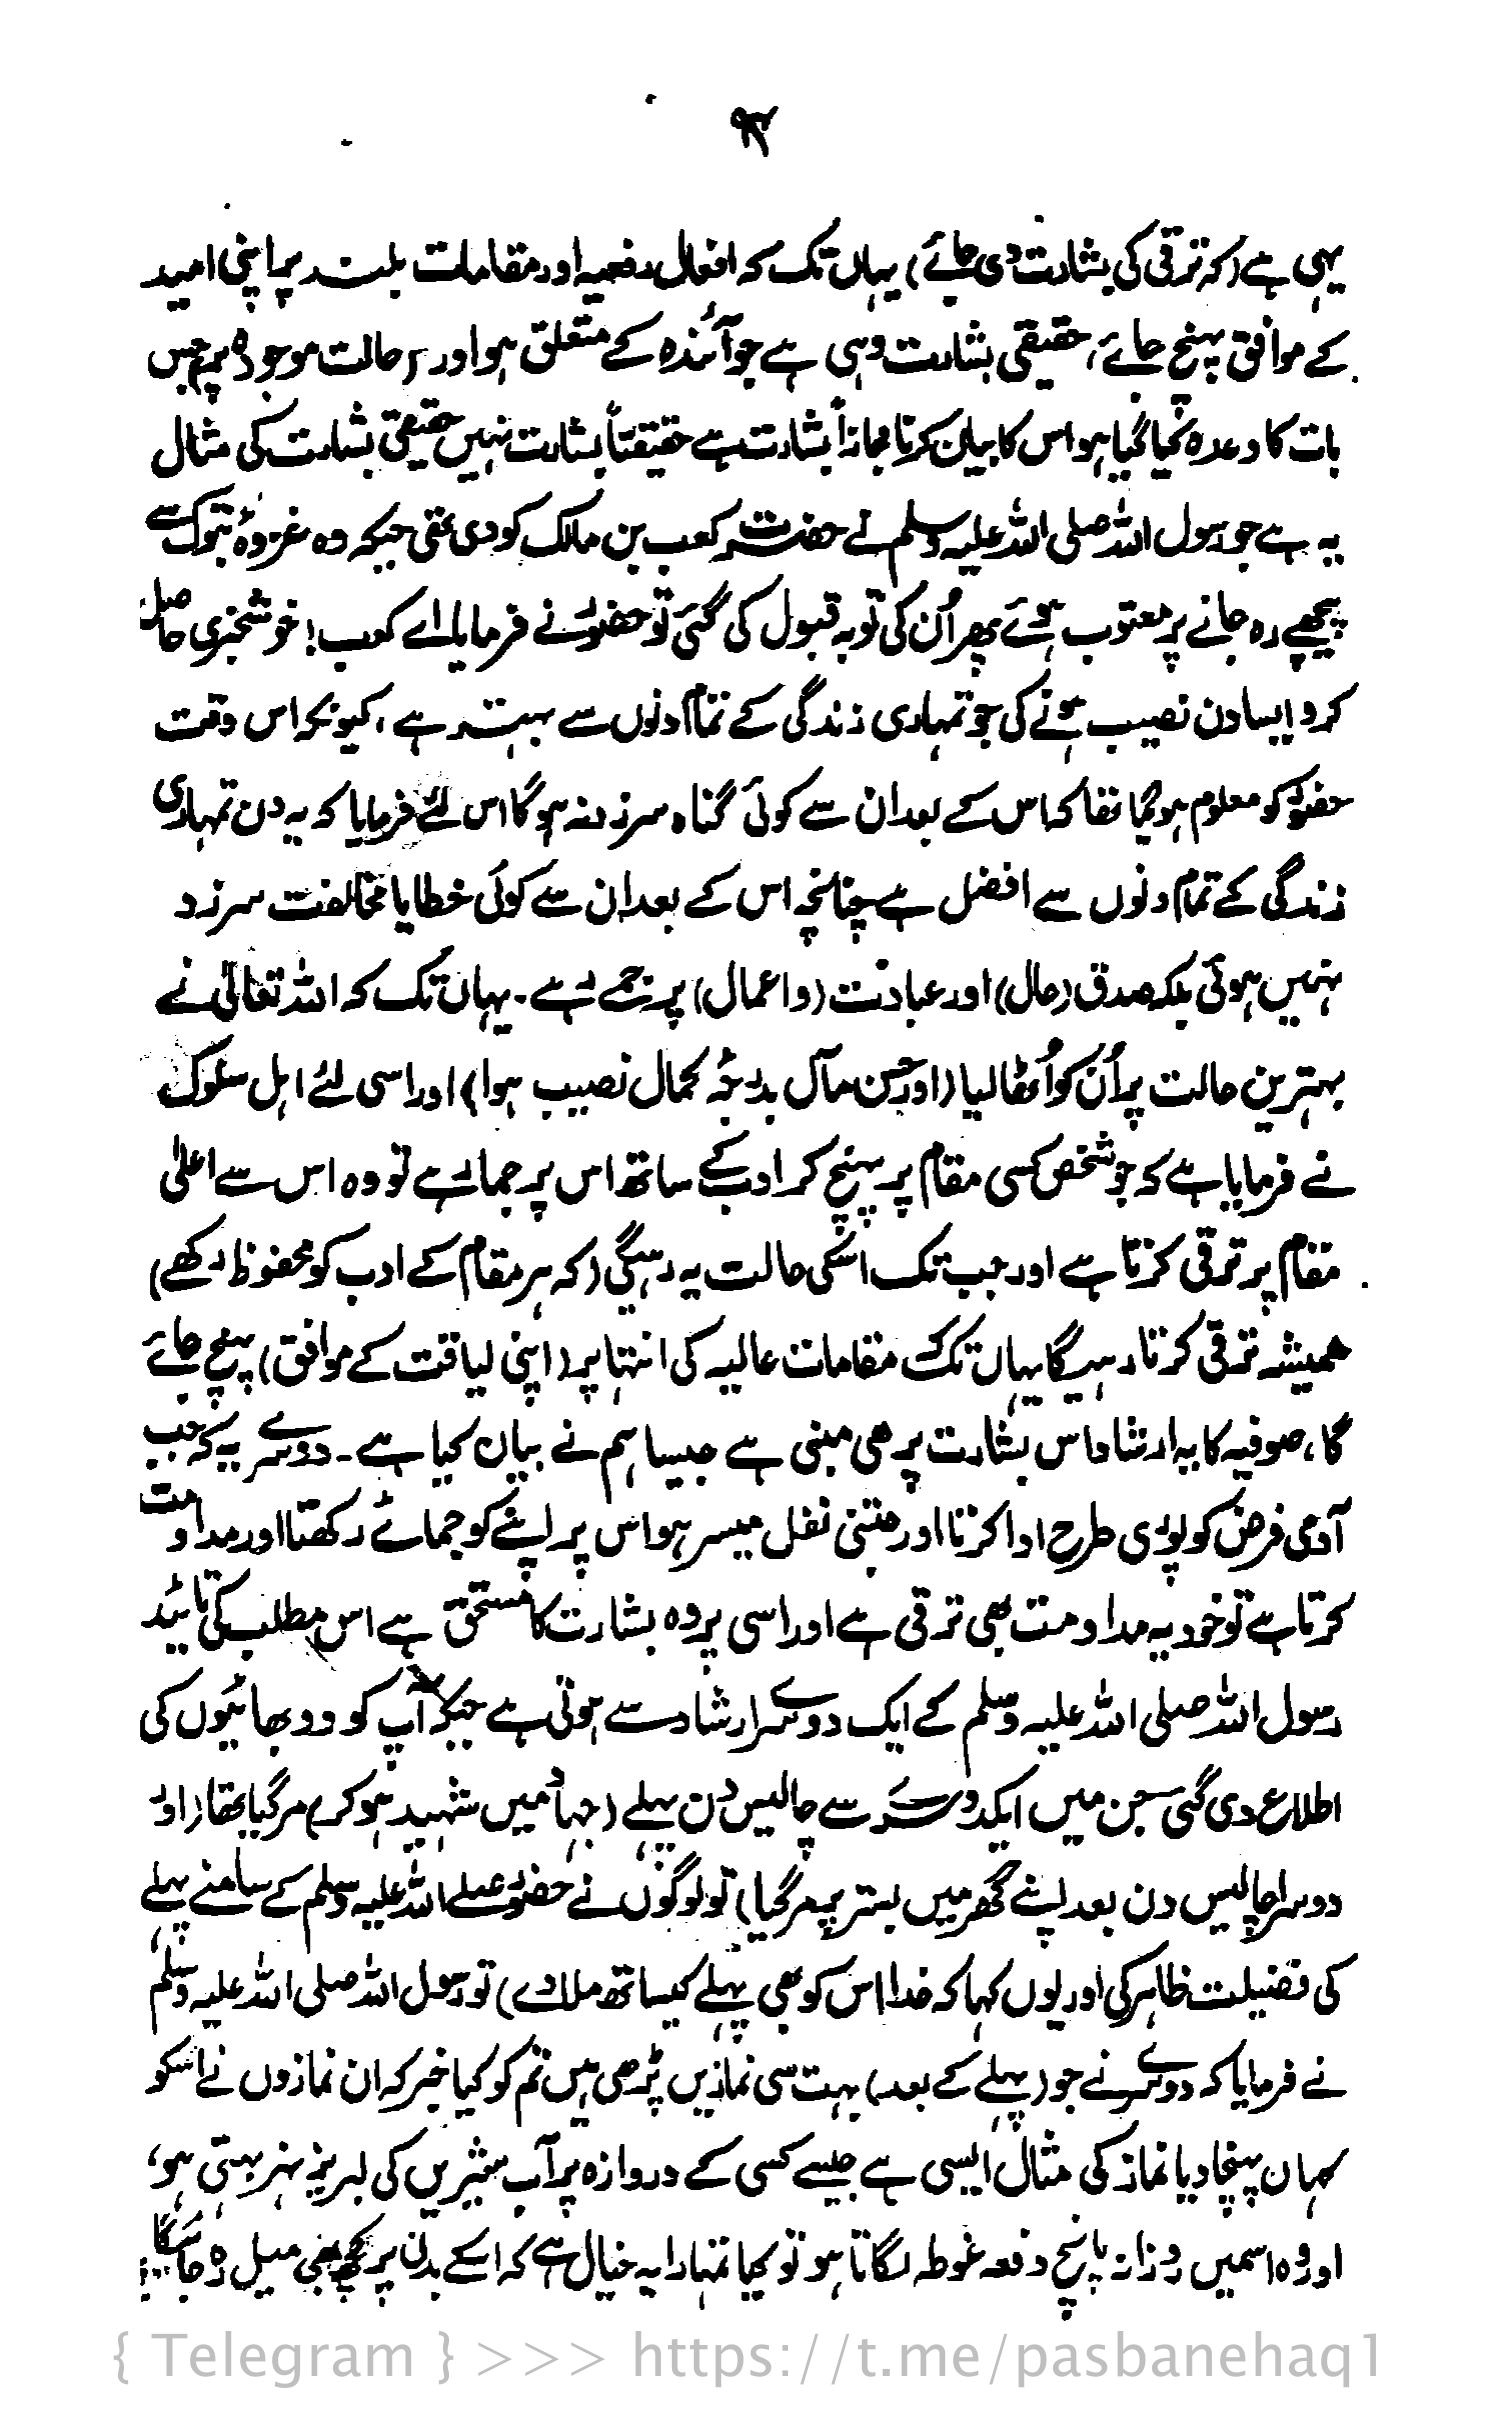 ۹۲
یہی ہے (کہ ترقی کی بشارت دی جائے) یہاں تک کہ افعال رفعیہ اور مقامات بلند پر اپنی امید
کے موافق پہنچ جائے، حقیقی بشارت وہی ہے جو آئندہ کے متعلق ہو اور حالت موجودہ پر جس
بات کا وعدہ کیا گیا ہو اس کا بیان کرنا مجازاً بشارت ہے حقیقتاً بشارت نہیں حقیقی بشارت کی مثال
یہ ہے جو رسول اللہ صلی اللہ علیہ وسلم نے حضرت کعب بن مالک کو دی تھی جبکہ وہ غزوہ تبوک سے
پیچھے رہ جانے پر معتوب ہوئے پھر اُن کی توبہ قبول کی گئی تو حضورؐ نے فرمایا اے کعب! خوشخبری حاصل
کرو ایسا دن نصیب ہونے کی جو تمہاری زندگی کے تمام دنوں سے بہتر ہے، کیونکہ اس وقت
حضورؐ کو معلوم ہو گیا تھا کہ اس کے بعد ان سے کوئی گناہ سرزد نہ ہو گا اس لئے فرمایا کہ یہ دن تمہاری
زندگی کے تمام دنوں سے افضل ہے چنانچہ اس کے بعد ان سے کوئی خطا یا مخالفت سرزد
نہیں ہوئی بلکہ صدق (حال) اور عبادت (و اعمال) پر جمے رہے۔ یہاں تک کہ اللہ تعالیٰ نے
بہترین حالت پر اُن کو اُٹھا لیا (اور حسن مآل بدرجۂ کمال نصیب ہوا) اور اسی لئے اہل سلوک
نے فرمایا ہے کہ جو شخص کسی مقام پر پہنچ کر ادب کے ساتھ اس پر جما رہے تو وہ اس سے اعلیٰ
مقام پر ترقی کرتا ہے اور جب تک اسکی حالت یہ رہیگی (کہ ہر مقام کے ادب کو محفوظ رکھے)
ہمیشہ ترقی کرتا رہیگا یہاں تک مقامات عالیہ کی انتہا پر (اپنی لیاقت کے موافق) پہنچ جائے
گا، صوفیہ کا یہ ارشاد اس بشارت پر ہی مبنی ہے جیسا ہم نے بیان کیا ہے۔ دوسرے یہ کہ جب
آدمی فرض کو پوری طرح ادا کرتا اور جتنی نفل میسر ہو اس پر اپنے کو جمائے رکھتا اور مداومت
کرتا ہے تو خود یہ مداومت بھی ترقی ہے اور اسی پر وہ بشارت کا مستحق ہے اس مطلب کی تائید
رسول اللہ صلی اللہ علیہ وسلم کے ایک دوسرے ارشاد سے ہوتی ہے جبکہ آپ کو دو بھائیوں کی
اطلاع دی گئی جن میں ایک دوسرے سے چالیس دن پہلے (جہاد میں شہید ہو کر) مر گیا تھا (اور
دوسرا چالیس دن بعد اپنے گھر میں بستر پر مر گیا) تو لوگوں نے حضورؐ صلے اللہ علیہ وسلم کے سامنے پہلے
کی فضیلت ظاہر کی اور یوں کہا کہ خدا اس کو بھی پہلے کیساتھ ملا دے) تو رسول اللہ صلی اللہ علیہ وسلم
نے فرمایا کہ دوسرے نے جو (پہلے کے بعد) بہت سی نمازیں پڑھی ہیں تم کو کیا خبر کہ ان نمازوں نے اسکو
کہاں پہنچا دیا نماز کی مثال ایسی ہے جیسے کسی کے دروازہ پر آب شیریں کی لبریز نہر بہتی ہو،
اور وہ اسمیں روزانہ پانچ دفعہ غوطہ لگاتا ہو تو کیا تمہارا یہ خیال ہے کہ اسکے بدن پر کچھ بھی میل رہ جائیگا
{ Telegram } >>> https://t.me/pasbanehaq1